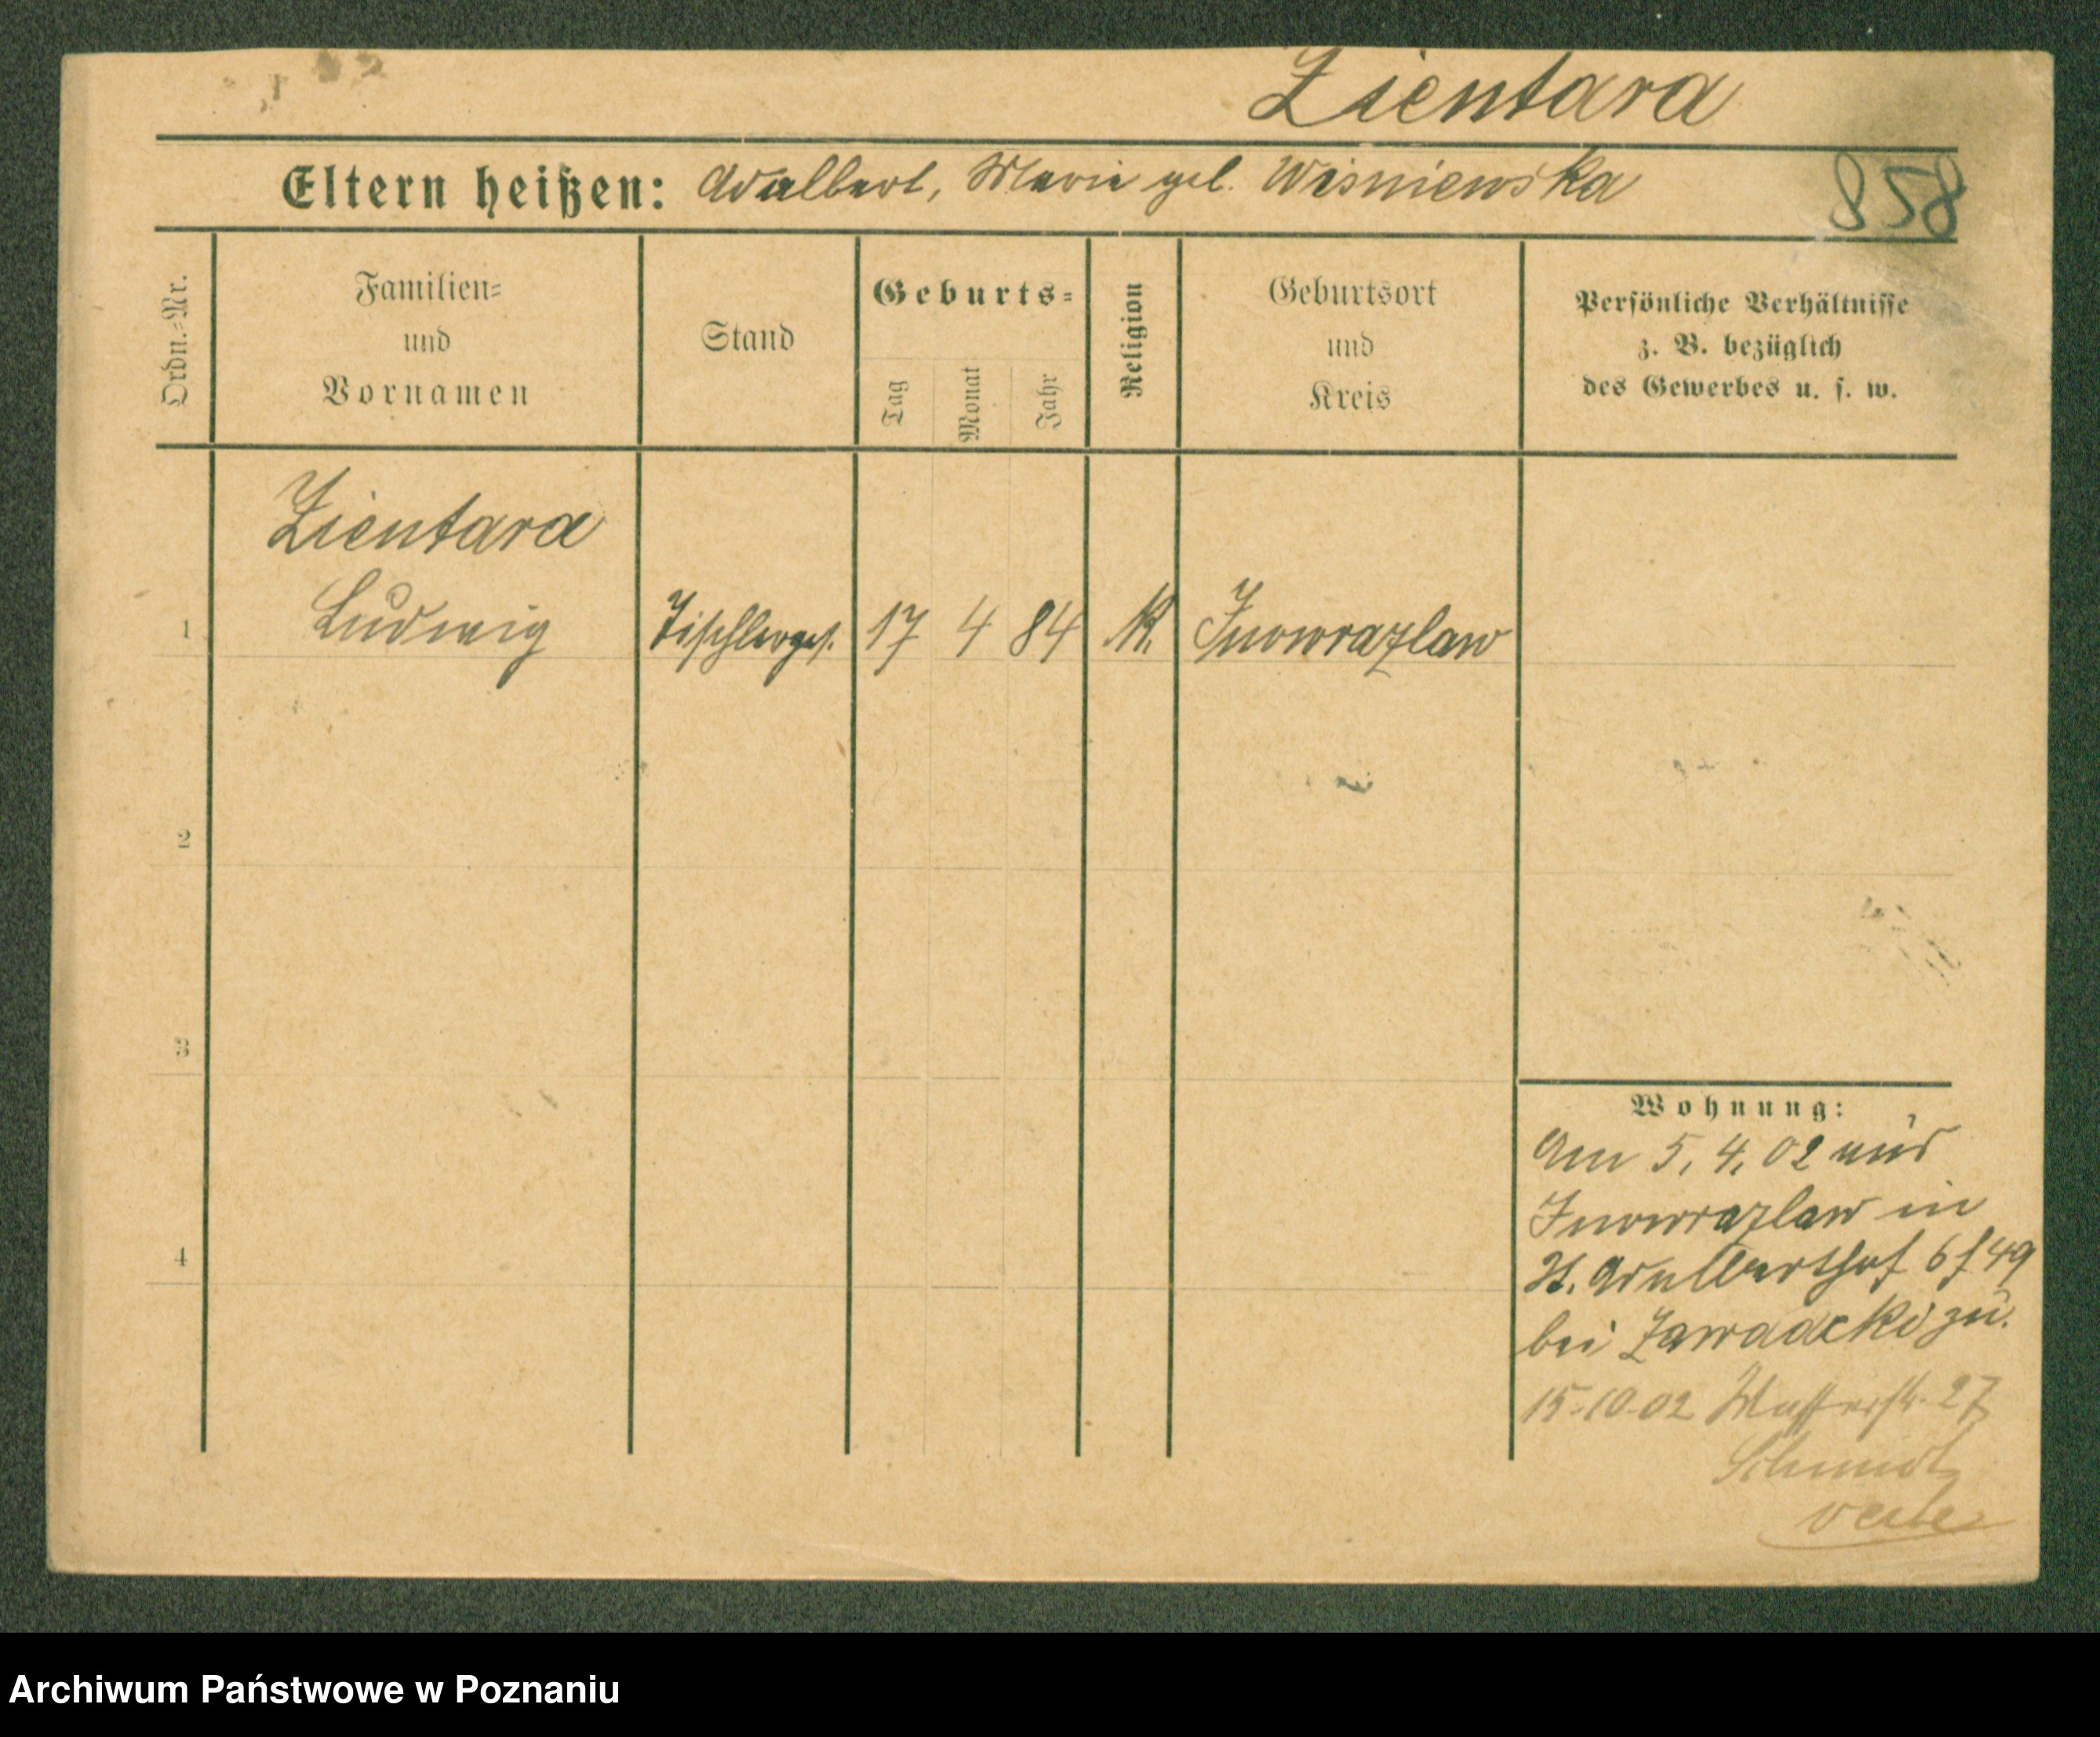 Zientara
Eltern heißen: Adalbert, Marie geb. Wisniewska
858
Ordn.=Nr.
Familien=
und
Vornamen
Stand
Geburts=
Tag
Monat
Jahr
Religion
Geburtsort
und
Kreis
Persönliche Verhältnisse
z. B. bezüglich
des Gewerbes u. s. w.
Zientara
1 Ludwig Tischlerges. 17 4 84 K. Inowrazlaw
2
3
4
Wohnung:
Am 5. 4. 02 aus
Inowrazlaw in
St. Adalberthof 6
bei Zawadcki zu.
15-10-02 Wasserstr. 27
Schmidt
verte
Archiwum Państwowe w Poznaniu